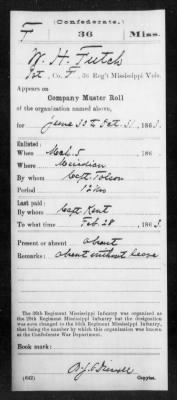 (Confederate.)
F 36 Miss.
W. H. Futch
Pvt, Co. F, 36 Reg't Mississippi Vols.
Appears on
Company Muster Roll
of the organization named above,
for June 30 to Oct. 31, 1863.
Enlisted:
When Mch. 5, 186
Where Meridian
By whom Capt.
Period 12 mos
Last paid:
By whom Capt. Kent
To what time Feb. 28, 1863.
Present or absent Absent
Remarks: Absent without leave
The 36th Regiment Mississippi Infantry was organized as
the 29th Regiment Mississippi Infantry but the designation
was soon changed to the 36th Mississippi Infantry, that
being the number by which this organization was known
at the Confederate War Department.
Book mark:
(642) Copyist.